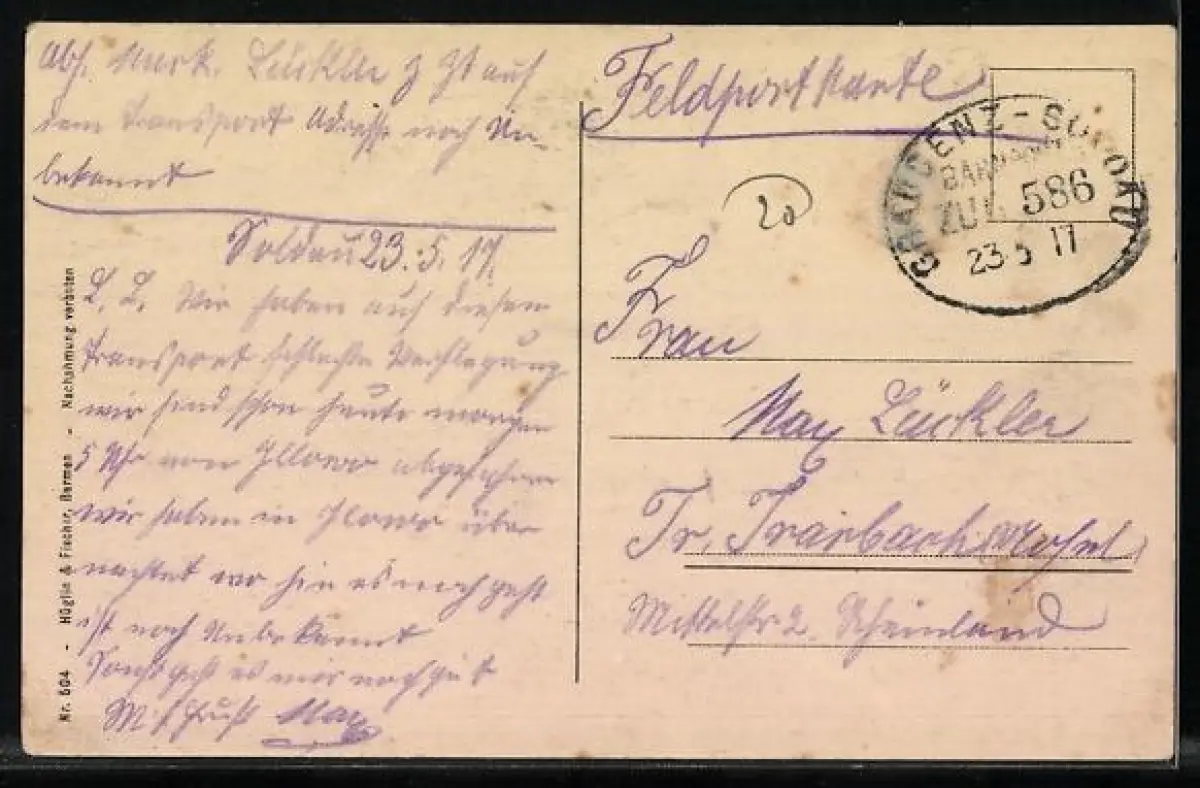 Abs. Musk. Lückler z Zt auf
dem Transport Adresse noch Un-
bekannt
Soldau 23.5.17.
L. L. Wir haben auf diesem
Transport schlechte Verflegung
wir sind schon heute morgen
5 Uhr von Illowo abgefahren
wir haben in Ilowo über
nachtet wo hin es noch geht
ist noch Unbekannt
Sonst geht es mir noch gut
Mit Gruß Max
Nr. 604 - Hüglin & Fischer, Barmen - Nachahmung verboten
Feldpostkarte
GRAUDENZ-SOLDAU
ZUG 586
23 5 17
20
Frau
Max Lückler
Tr. Trarbach Mosel
Mittelstr 2. Rheinland